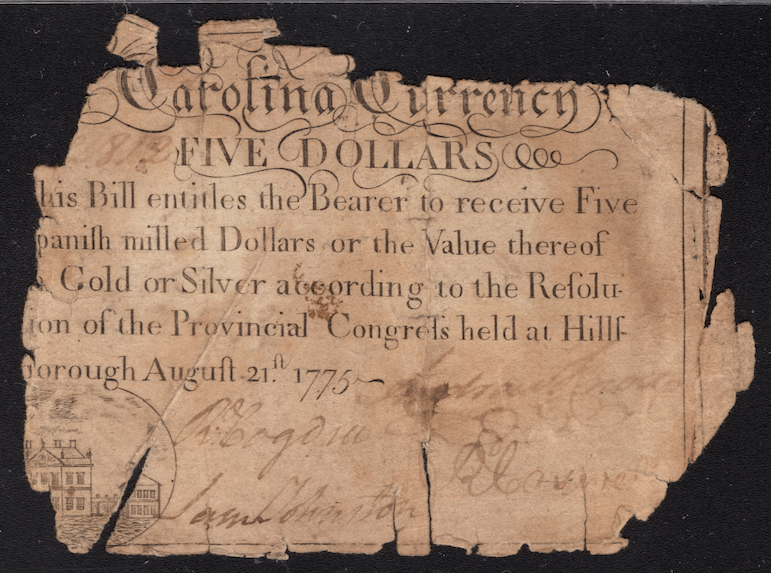 Carolina Currency
FIVE DOLLARS
his Bill entitles the Bearer to receive Five
paniſh milled Dollars or the Value thereof
Gold or Silver according to the Reſolu-
ion of the Provincial Congreſs held at Hillſ-
orough Auguſt 21.ſt 1775
Rd Cogdell
Sam Johnston